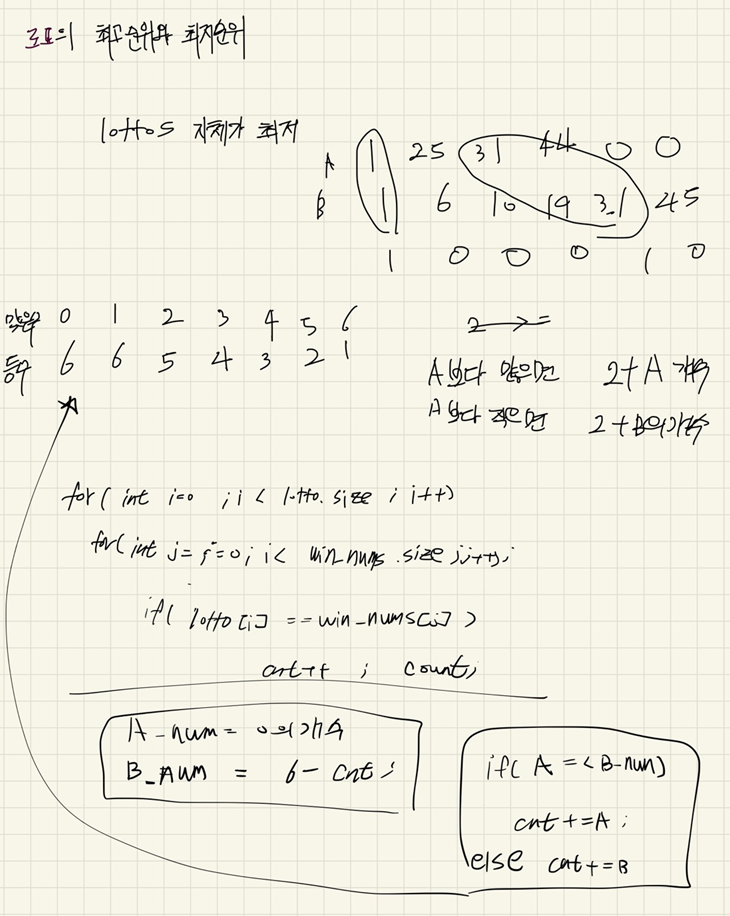 로또의 최고순위와 최저순위
lottos 자체가 최저
A 1 25 31 44 0 0
B 1 6 10 19 31 45
1 0 0 0 1 0
맞춘수 0 1 2 3 4 5 6
등수 6 6 5 4 3 2 1
2 → =
A보다 많으면 2+A 개수
A보다 적으면 2+B의개수
for( int i=0 ; i < lotto.size ; i++)
for( int j= j=0; i< win_nums.size j++);
if( lotto[i] == win_nums[i] )
cnt++ ; count;
A_num = 0의개수
B_num = 6 - cnt;
if( A =< B-num)
cnt += A ;
else cnt += B